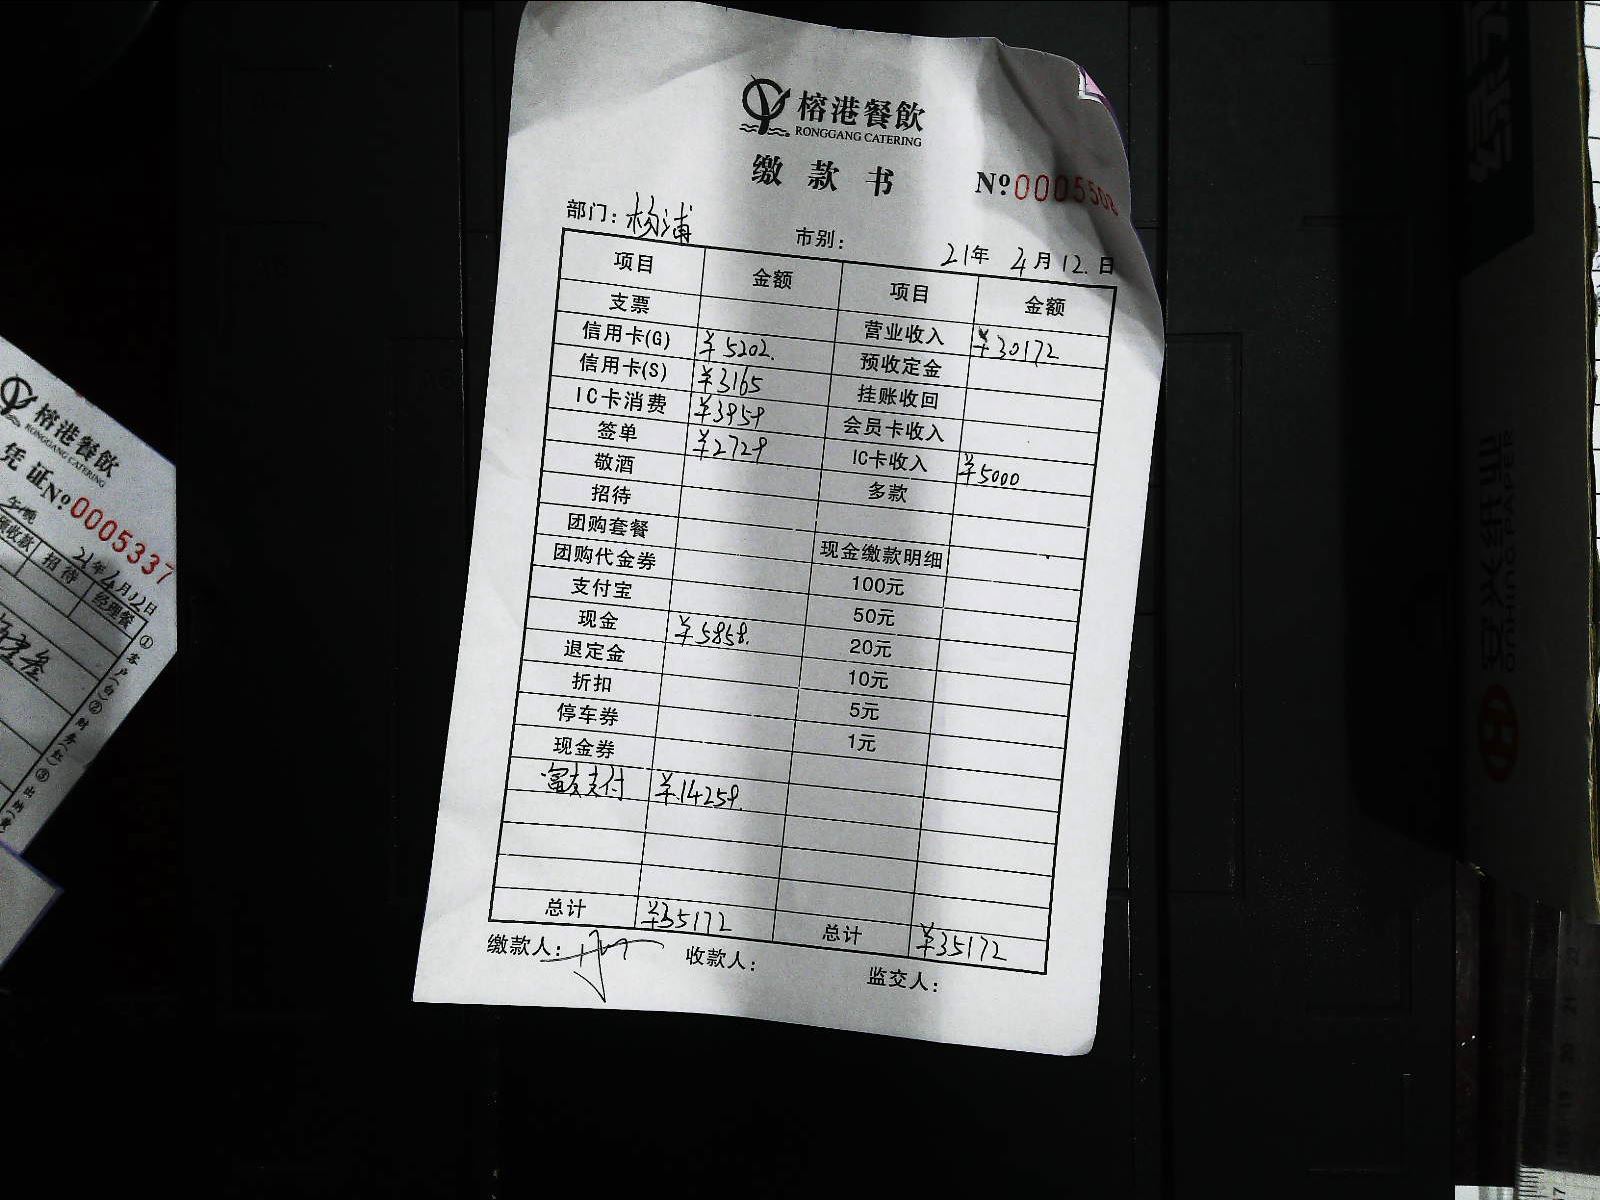 榕港餐飲
RONGGANG CATERING
缴款书 №0005508
部门：杨浦 市别： 21年 4月12.日
项目 金额 项目 金额
支票 营业收入 ¥30172
信用卡(G) ¥5202. 预收定金
信用卡(S) ¥3165 挂账收回
IC卡消费 ¥3959 会员卡收入
签单 ¥2729 IC卡收入 ¥5000
敬酒 多款
招待
团购套餐 现金缴款明细
团购代金券 100元
支付宝 50元
现金 ¥5858. 20元
退定金 10元
折扣 5元
停车券 1元
现金券
富友支付 ¥14259.
总计 ¥35172 总计 ¥35172
缴款人： 收款人： 监交人：
榕港餐飲
RONGGANG CATERING
凭证№0005337
21年4月12日
招待 经理餐
①客户(白)②财务(红)③出纳(黄)